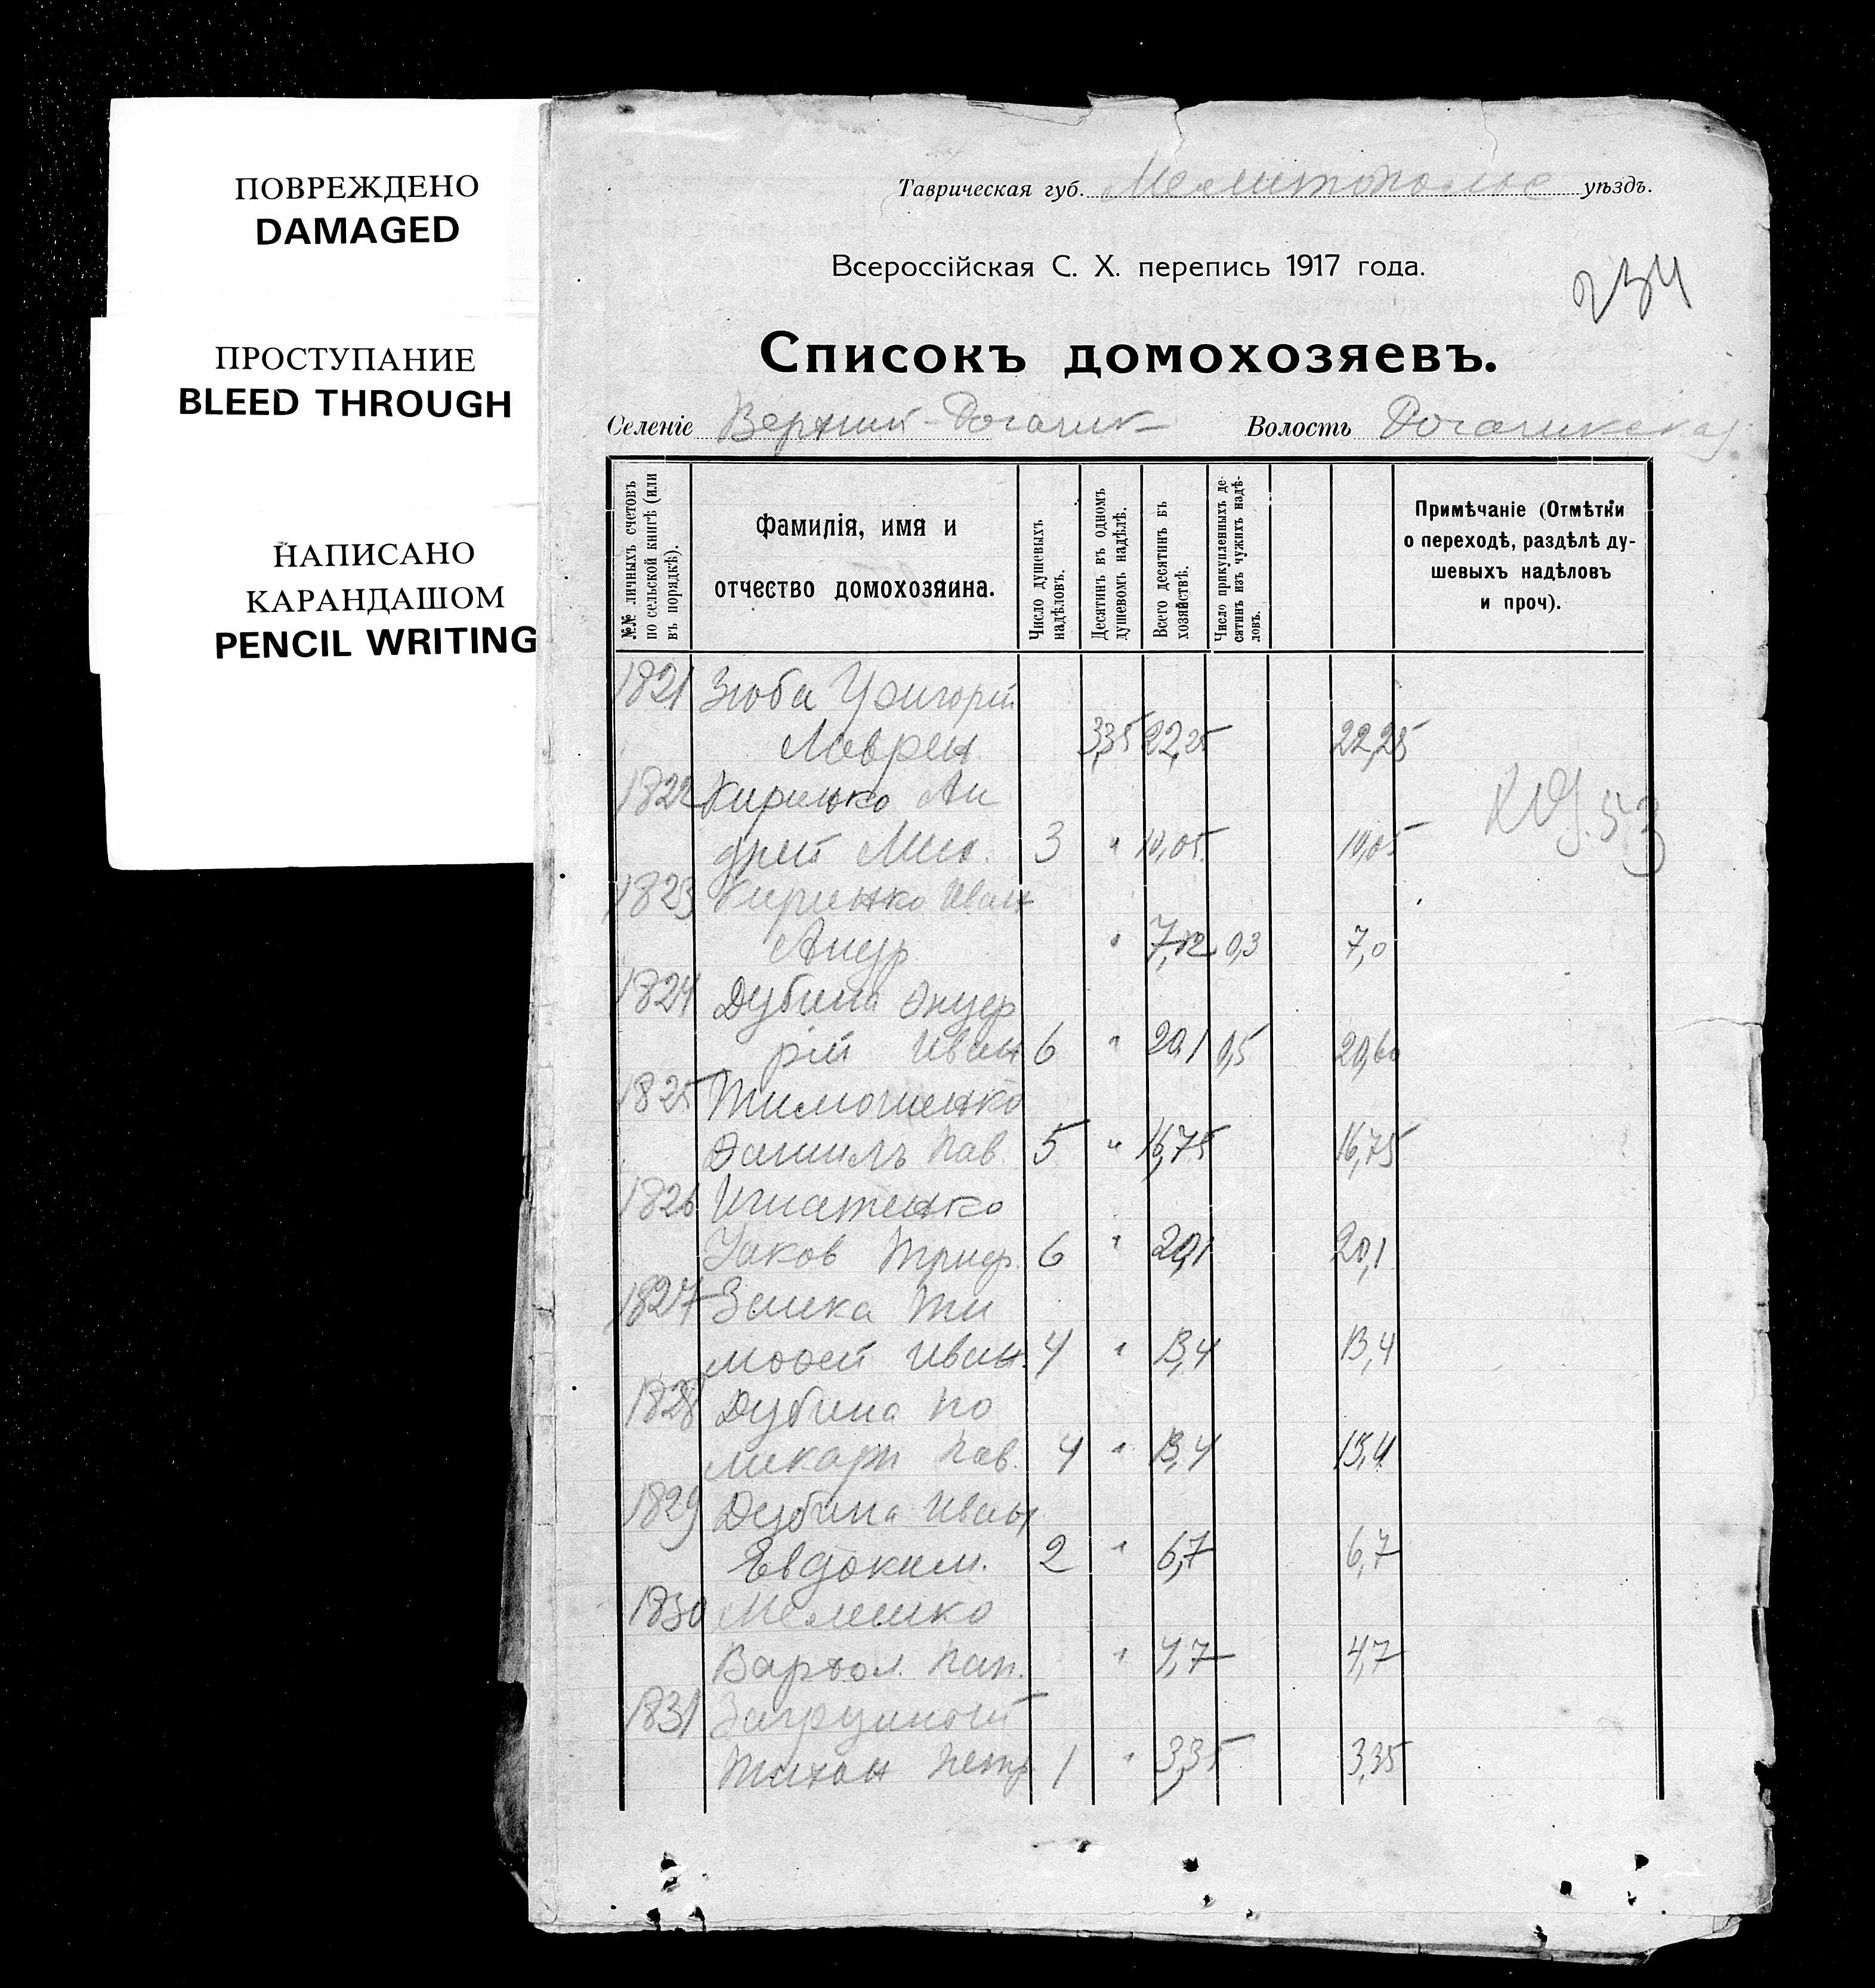 ПОВРЕЖДЕНО
DAMAGED
ПРОСТУПАНИЕ
BLEED THROUGH
НАПИСАНО
КАРАНДАШОМ
PENCIL WRITING
Таврическая губ. Мелитополье уѣздъ.
Всероссійская С. Х. перепись 1917 года.
234
Списокъ домохозяевъ.
Селеніе Верхний-Рогачик Волость Рогачикская
№№ личныхъ счетовъ
по сельской книгѣ (или
въ порядкѣ).
Фамилія, имя и
отчество домохозяина.
Число душевыхъ
надѣловъ.
Десятинъ въ одномъ
душевомъ надѣлѣ.
Всего десятинъ въ
хозяйствѣ.
Число прикупленныхъ де-
сятинъ изъ чужихъ надѣ-
ловъ.
Примѣчаніе (Отмѣтки
о переходѣ, раздѣлѣ ду-
шевыхъ надѣловъ
и проч).
1821 Зюба Григорій
Лаврен. 3,35 22,25 22,25
1822 Кирилько Ан
дрей Мих. 3 " 10,05 10,05
1823 Иван
Андр " 7,12 0,3 7,0
1824 Дубина Онуф
рій Иван 6 " 20,1 0,5 20,60
1825 Тимошенко
Данилъ Пав. 5 " 16,75 16,75
1826 Игнатенко
Яков Триф. 6 " 20,1 20,1
1827 Заика Ти
мофей Иван. 4 " 13,4 13,4
1828 Дубина По
ликарп Пав. 4 " 13,4 13,4
1829 Дубина Иван
Евдоким. 2 " 6,7 6,7
1830 Мелешко
Варфол. Пан. " 4,7 4,7
1831
Тихон Петр 1 " 3,35 3,35